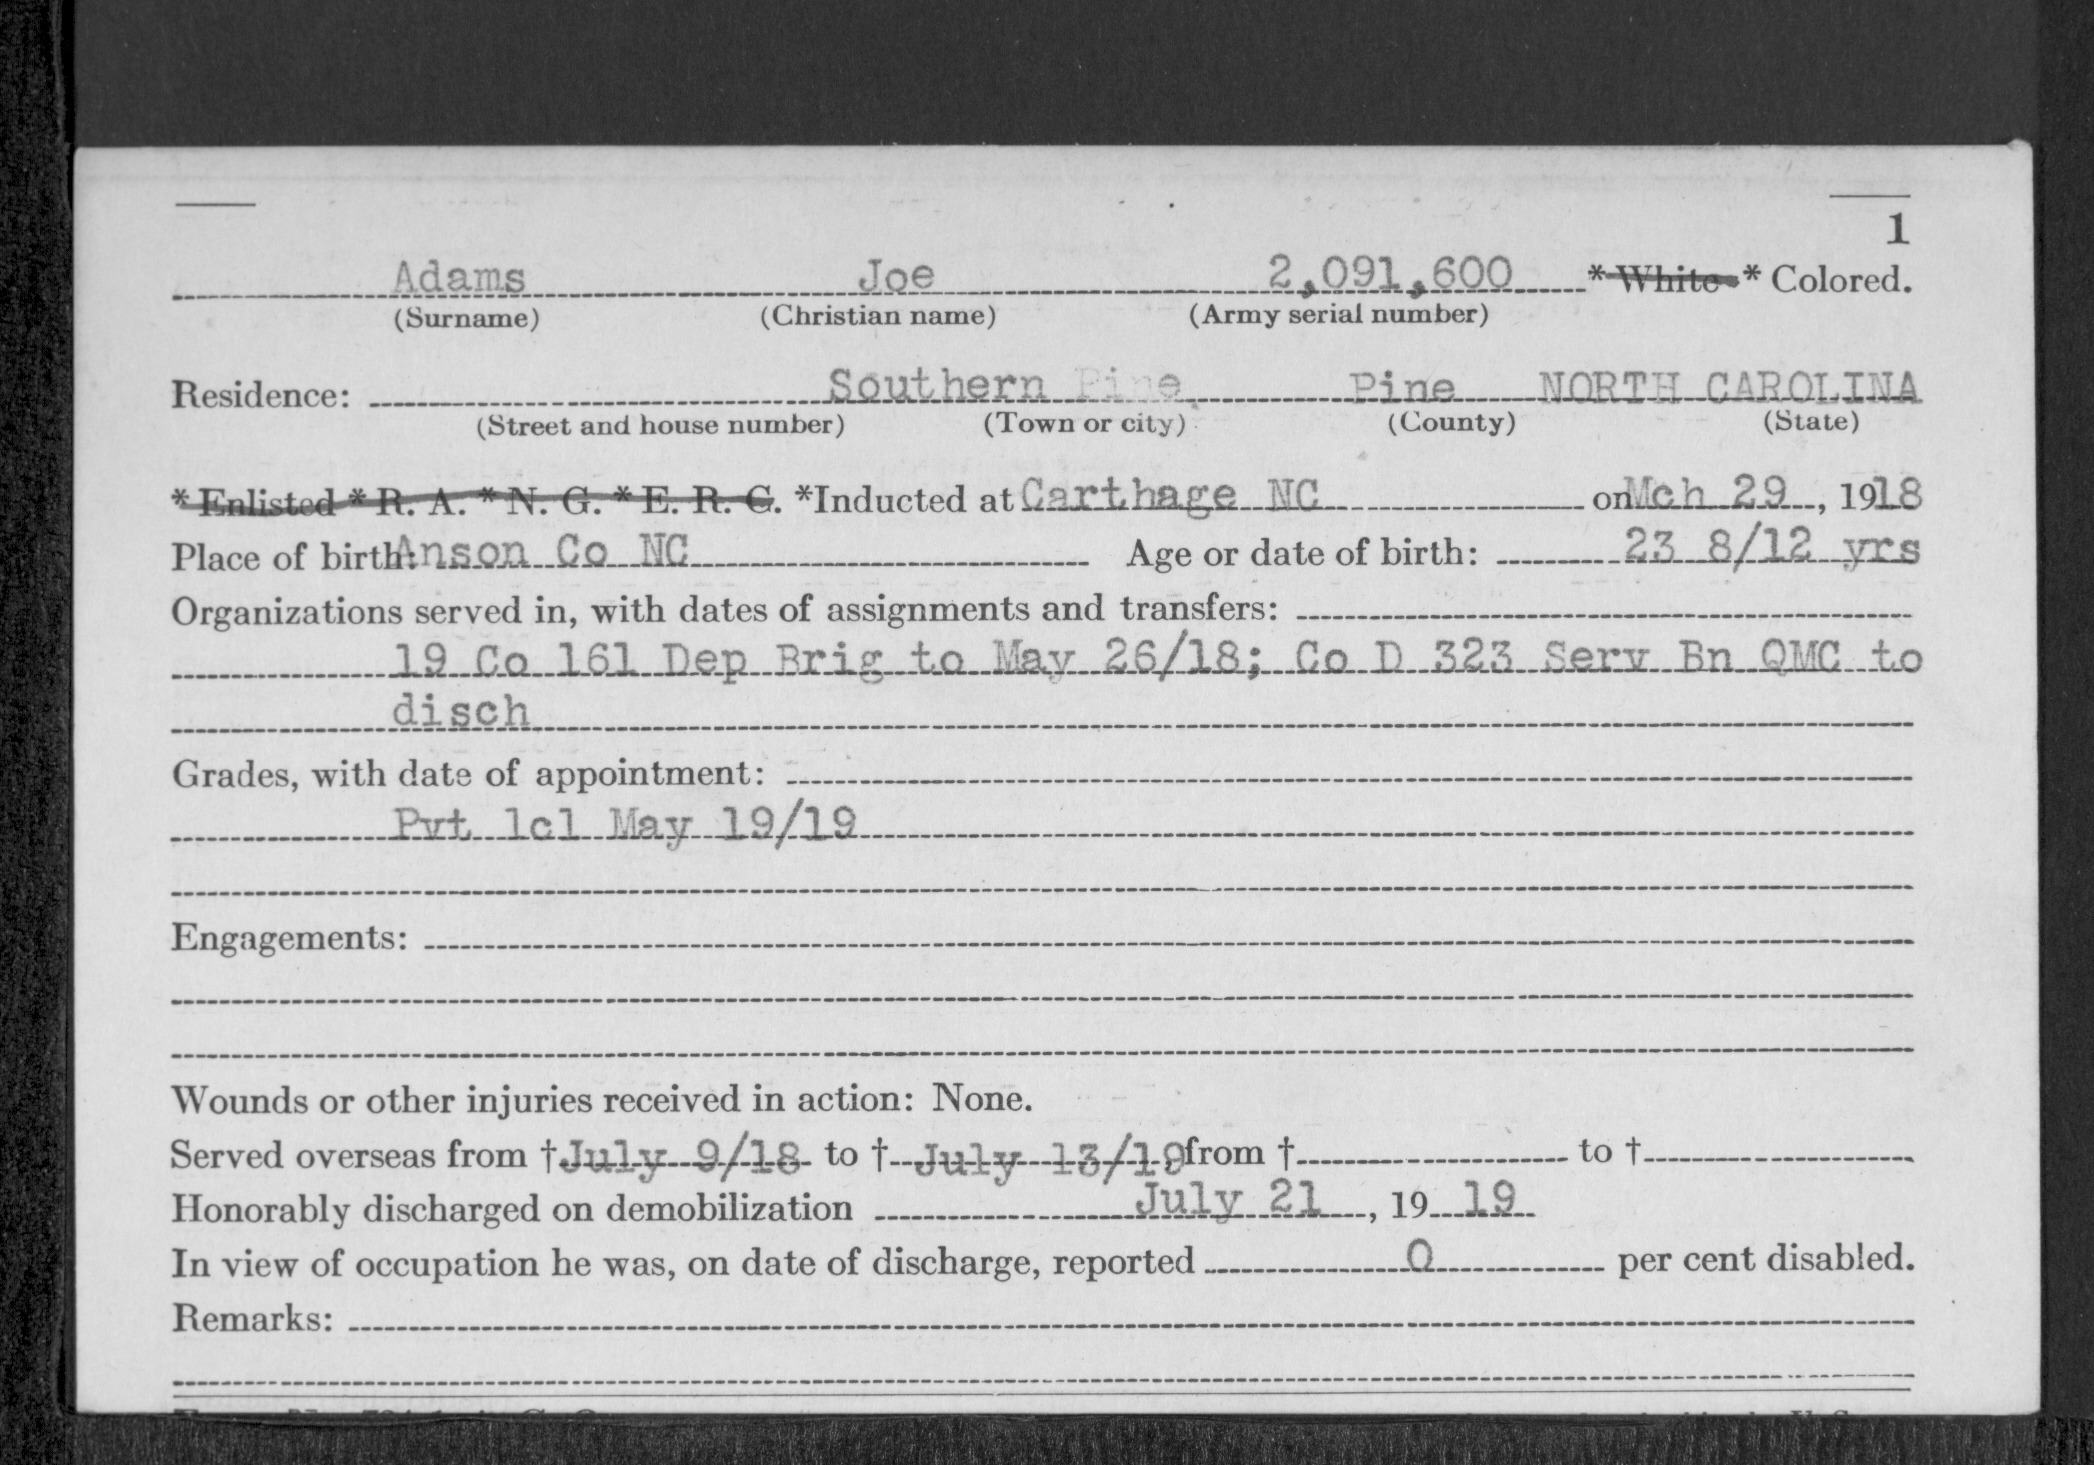 1
Adams Joe 2,091,600 * White * Colored.
(Surname) (Christian name) (Army serial number)
Residence: Southern Pine Pine NORTH CAROLINA
(Street and house number) (Town or city) (County) (State)
* Enlisted * R. A. * N. G. * E. R. C. *Inducted at Carthage NC on Mch 29, 1918
Place of birth: Anson Co NC Age or date of birth: 23 8/12 yrs
Organizations served in, with dates of assignments and transfers:
19 Co 161 Dep Brig to May 26/18; Co D 323 Serv Bn QMC to
disch
Grades, with date of appointment:
Pvt 1cl May 19/19
Engagements:
Wounds or other injuries received in action: None.
Served overseas from † July 9/18 to † July 13/19 from † to †
Honorably discharged on demobilization July 21, 19 19
In view of occupation he was, on date of discharge, reported 0 per cent disabled.
Remarks: